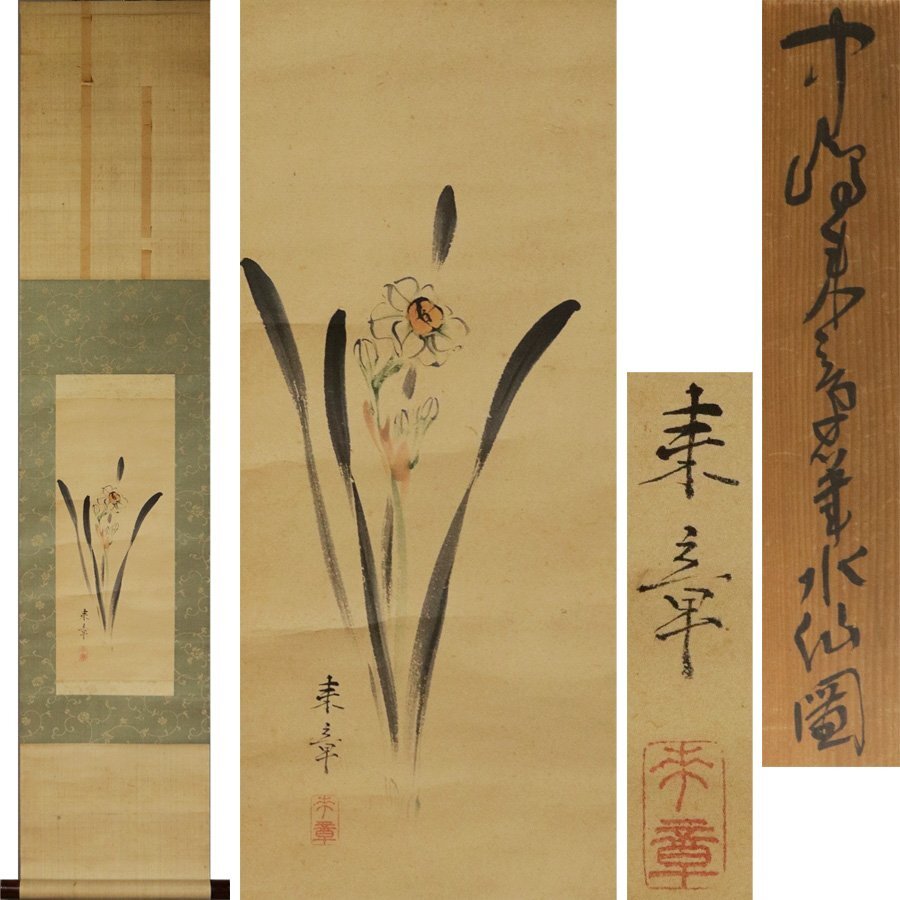 来章
来章
来章
来章
来章
来章
中嶋来章筆水仙圖